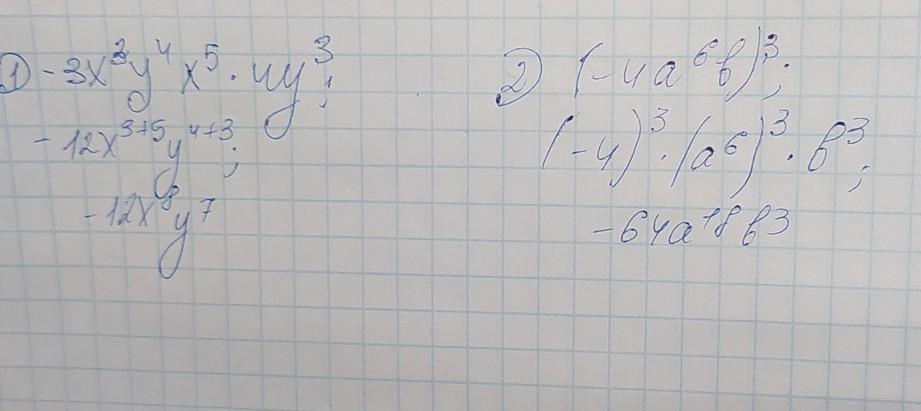 1) -3x³y⁴x⁵ · 4y³;
-12x³⁺⁵y⁴⁺³;
-12x⁸y⁷
2) (-4a⁶b)³;
(-4)³ · (a⁶)³ · b³;
-64a¹⁸b³